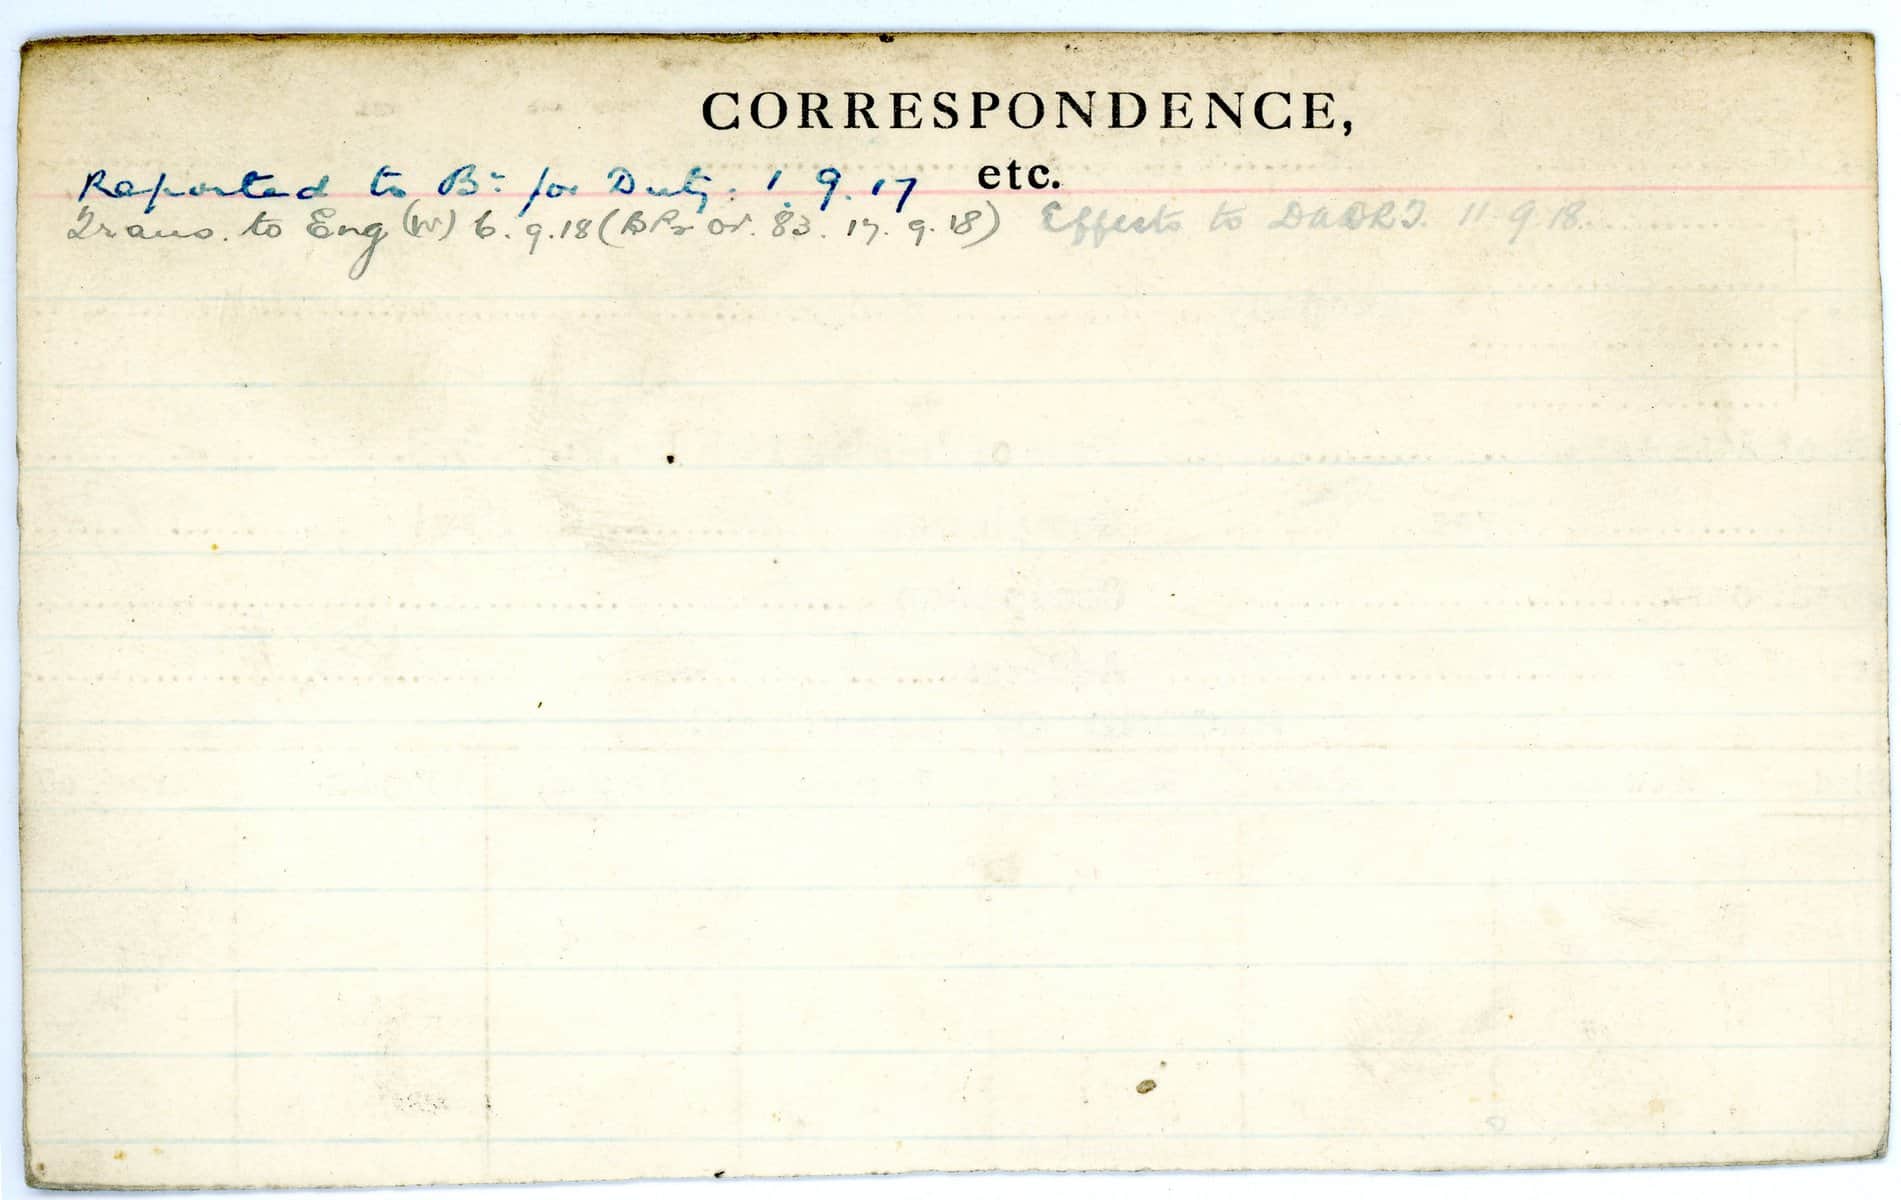 CORRESPONDENCE,
etc.
Reported to Bn for Duty. 1.9.17
Trans. to Eng (W) 6.9.18 (BRs Or. 83. 17.9.18) Effects to DADRT. 11.9.18.